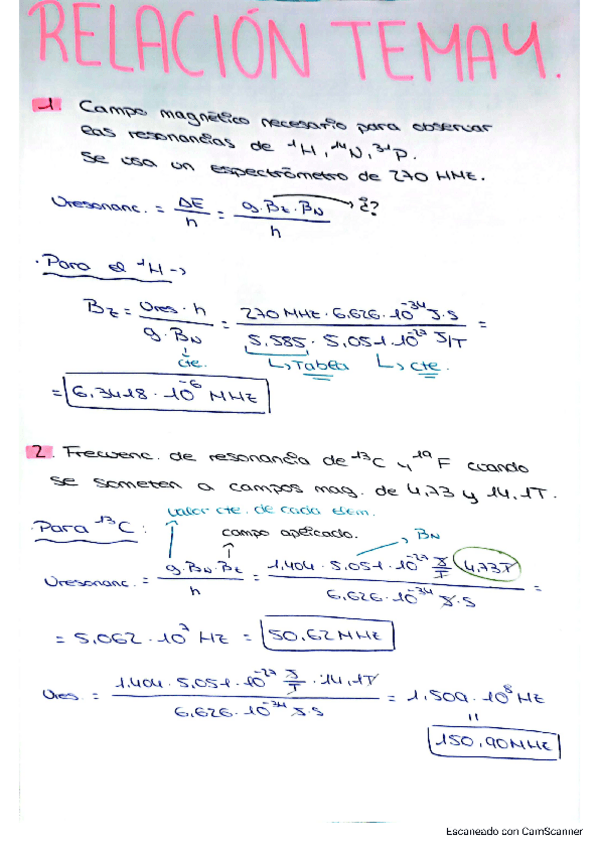 RELACIÓN TEMA 4.
1 Campo magnético necesario para observar
las resonancias de ¹H, ¹⁴N, ³¹P.
Se usa un espectrómetro de 270 MHz.
υresonanc. = ΔE/h = g·Bz·BN/h → ¿?
· Para el ¹H ->
Bz = υres·h / g·BN = 270 MHz · 6,626·10⁻³⁴ J·s / 5,585 · 5,051·10⁻²⁷ J/T =
cte. ↳ Tabla ↳ cte.
= 6,3418 · 10⁻⁶ MHz
2. Frecuenc. de resonancia de ¹³C y ¹⁹F cuando
se someten a campos mag. de 4,73 y 14,1T.
valor cte. de cada elem.
· Para ¹³C : campo aplicado. → BN
υresonanc. = g·BN·Bz / h = 1,404 · 5,051·10⁻²⁷ J/T 4,73T / 6,626·10⁻³⁴ J·s =
= 5,062 · 10⁷ Hz = 50,62 MHz
υres. = 1,404 · 5,051·10⁻²⁷ J/T · 14,1T / 6,626·10⁻³⁴ J·s = 1,509 · 10⁸ Hz
=
150,90 MHz
Escaneado con CamScanner